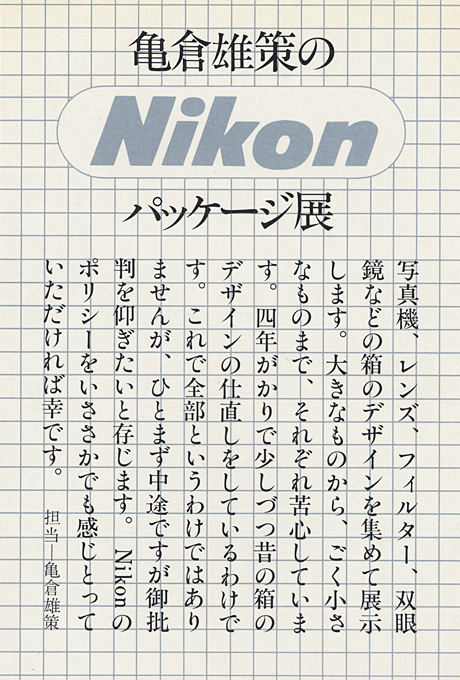 亀倉雄策の
Nikon
パッケージ展
写真機、レンズ、フィルター、双眼
鏡などの箱のデザインを集めて展示
します。大きなものから、ごく小さ
なものまで、それぞれ苦心していま
す。四年がかりで少しづつ昔の箱の
デザインの仕直しをしているわけで
す。これで全部というわけではあり
ませんが、ひとまず中途ですが御批
判を仰ぎたいと存じます。Nikonの
ポリシーをいささかでも感じとって
いただければ幸です。
担当—亀倉雄策